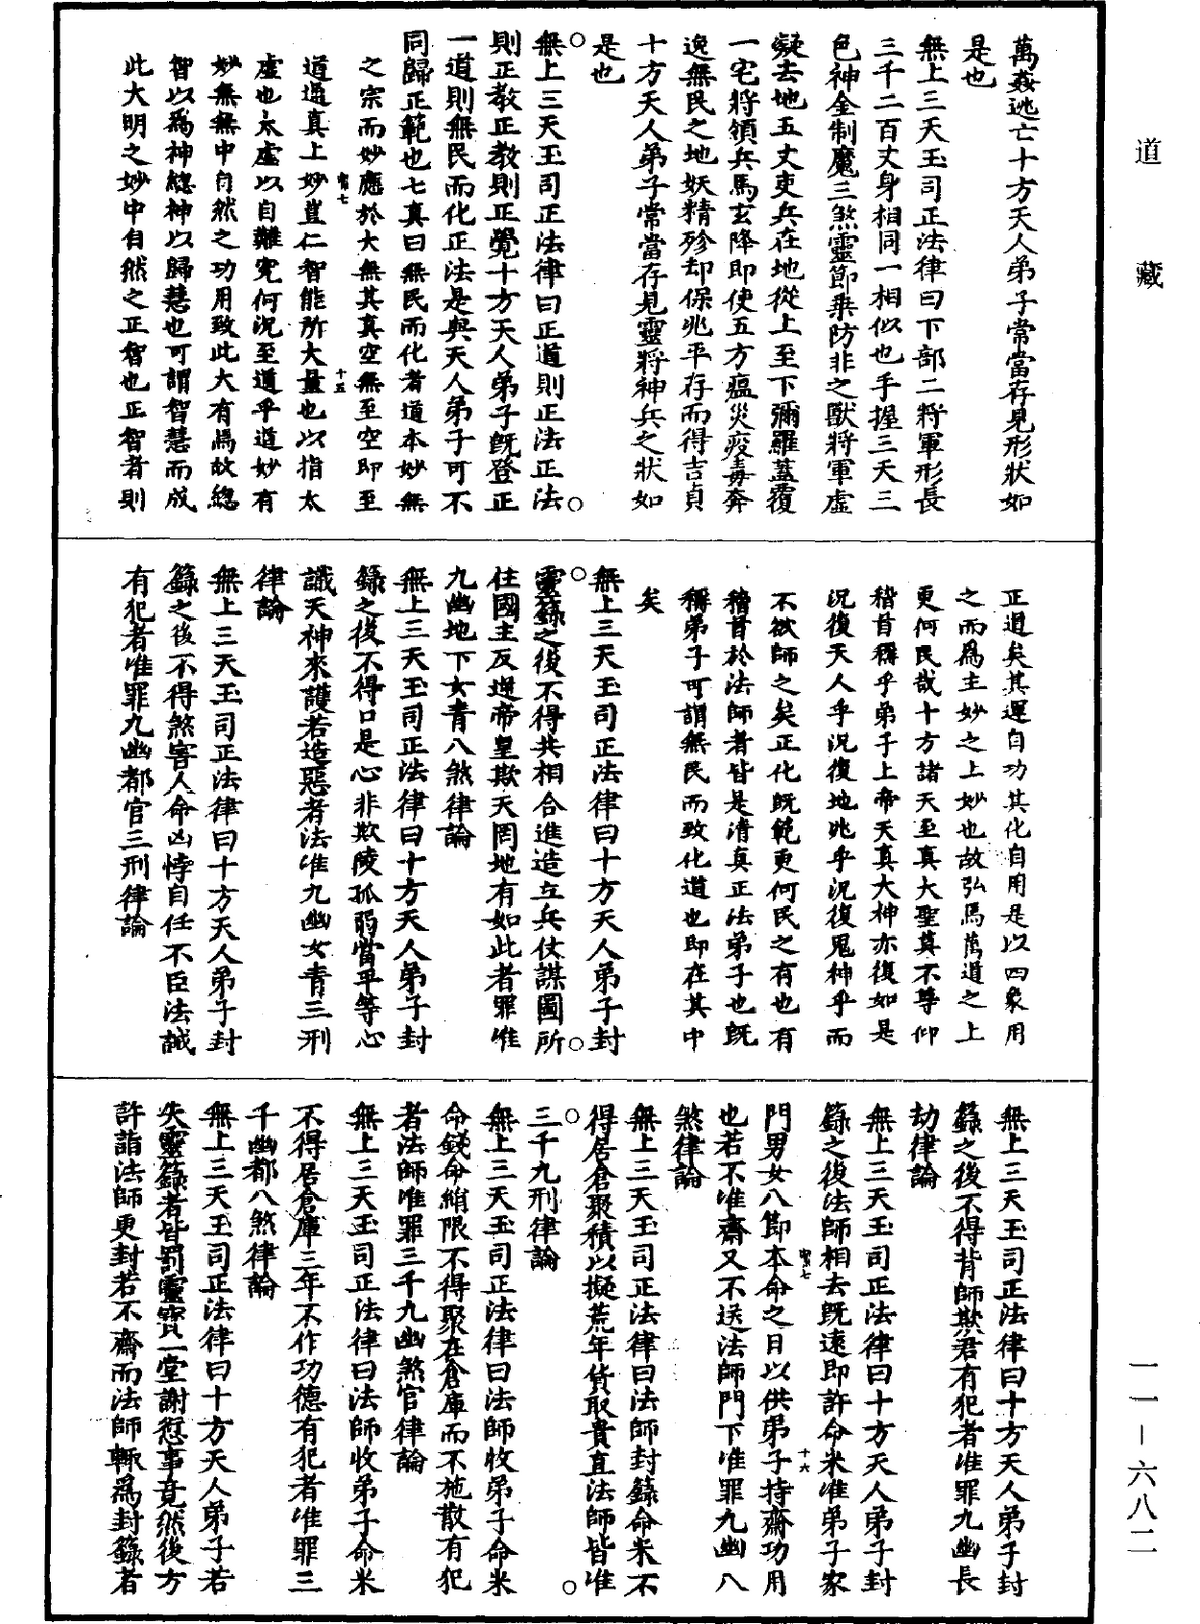 道藏
一一－六八二
萬姦逃亡十方天人弟子常當存見形狀如
是也
無上三天玉司正法律曰下部二將軍形長
三千二百丈身相同一相似也手握三天三
色神金制魔三煞靈節乘防非之獸將軍虛
凝去地五丈吏兵在地從上至下彌羅蓋覆
一宅將領兵馬玄降即使五方瘟災疫毒奔
逸無民之地妖精殄却保兆平存而得吉貞
十方天人弟子常當存見靈將神兵之狀如
是也
無上三天玉司正法律曰正道則正法正法
則正教正教則正覺十方天人弟子既登正
一道則無民而化正法是與天人弟子可不
同歸正範也七真曰無民而化者道本妙無
之宗而妙應於大無其真空無至空即至
道道通真上妙豈仁智能所大量也以指太
虛也太虛以自難究何況至道乎道妙有
妙無無中自然之功用致此大有焉故總
智以為神總神以歸慧也可謂智慧而成
此大明之妙中自然之正智也正智者則
正道矣其運自功其化自用是以四象用
之而為主妙之上妙也故弘焉萬道之上
更何民哉十方諸天至真大聖莫不尊仰
稽首稱乎弟子上帝天真大神亦復如是
況復天人乎況復地兆乎況復鬼神乎而
不欲師之矣正化既範更何民之有也有
稽首於法師者皆是清真正法弟子也既
稱弟子可謂無民而致化道也即在其中
矣
無上三天玉司正法律曰十方天人弟子封
靈籙之後不得共相合進造立兵仗謀圖所
住國主反逆帝皇欺天罔地有如此者罪准
九幽地下女青八煞律論
無上三天玉司正法律曰十方天人弟子封
籙之後不得口是心非欺陵孤弱當平等心
識天神來護若造惡者法准九幽女青三刑
律論
無上三天玉司正法律曰十方天人弟子封
籙之後不得煞害人命凶悖自任不臣法誡
有犯者准罪九幽都官三刑律論
無上三天玉司正法律曰十方天人弟子封
籙之後不得背師欺君有犯者准罪九幽長
劫律論
無上三天玉司正法律曰十方天人弟子封
籙之後法師相去既遠即許命米准弟子家
門男女八節本命之日以供弟子持齋功用
也若不准齋又不送法師門下准罪九幽八
煞律論
無上三天玉司正法律曰法師封籙命米不
得居倉聚積以擬荒年貨取貴直法師皆准
三千九刑律論
無上三天玉司正法律曰法師收弟子命米
命錢命絹限不得聚在倉庫而不施散有犯
者法師准罪三千九幽煞官律論
無上三天玉司正法律曰法師收弟子命米
不得居倉庫三年不作功德有犯者准罪三
千幽都八煞律論
無上三天玉司正法律曰十方天人弟子若
失靈籙者皆罰靈寶一堂謝愆事竟然後方
許詣法師更封若不齋而法師輙為封籙者